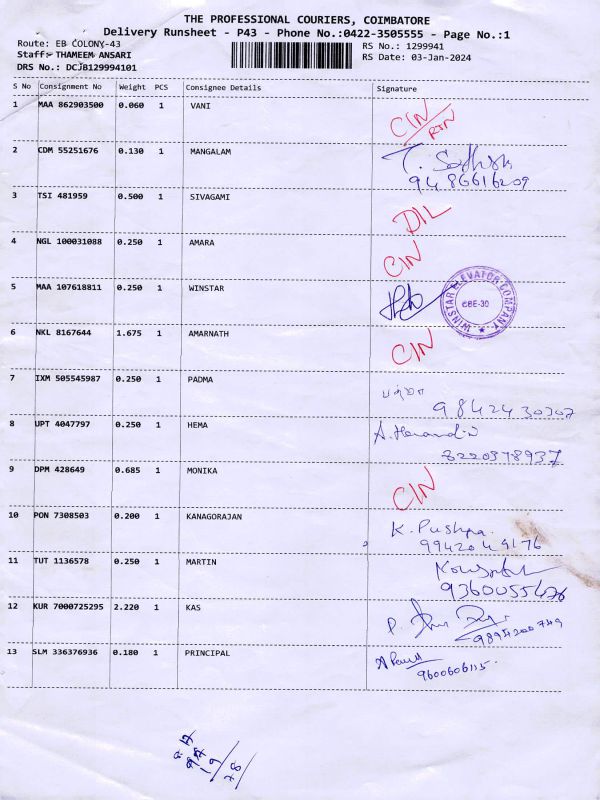 THE PROFESSIONAL COURIERS, COIMBATORE
Delivery Runsheet - P43 - Phone No.:0422-3505555 - Page No.:1
Route: EB COLONY-43
RS No.: 1299941
Staff: THAMEEM ANSARI
RS Date: 03-Jan-2024
DRS No.: DCJB129994101
S No Consignment No Weight PCS Consignee Details Signature
1 MAA 862903500 0.060 1 VANI CIN/RTN
2 CDM 55251676 0.130 1 MANGALAM
9486616209
3 TSI 481959 0.500 1 SIVAGAMI DIL
4 NGL 100031088 0.250 1 AMARA CIN
5 MAA 107618811 0.250 1 WINSTAR
WINSTAR ELEVATOR COMPANY
CBE-30
6 NKL 8167644 1.675 1 AMARNATH CIN
7 IXM 505545987 0.250 1 PADMA பத்மா
9842430307
8 UPT 4047797 0.250 1 HEMA
8220378937
9 DPM 428649 0.685 1 MONIKA CIN
10 PON 7308503 0.200 1 KANAGORAJAN K. Pushpa.
9942049176
11 TUT 1136578 0.250 1 MARTIN
9360055476
12 KUR 7000725295 2.220 1 KAS
9894200749
13 SLM 336376936 0.180 1 PRINCIPAL
9600606115.